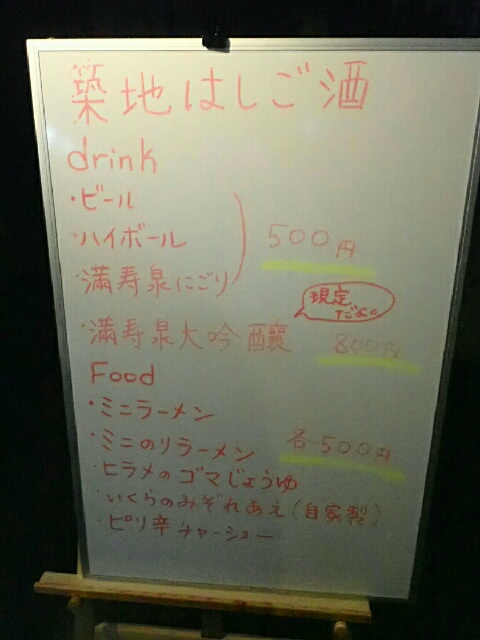 築地はしご酒
drink
・ビール
・ハイボール
500円
・満寿泉にごり
現定
だよ。
・満寿泉大吟醸
800円
Food
・ミニラーメン
・ミニのりラーメン
各500円
・ヒラメのゴマじょうゆ
・いくらのみぞれあえ(自家製)
・ピリ辛チャーシュー